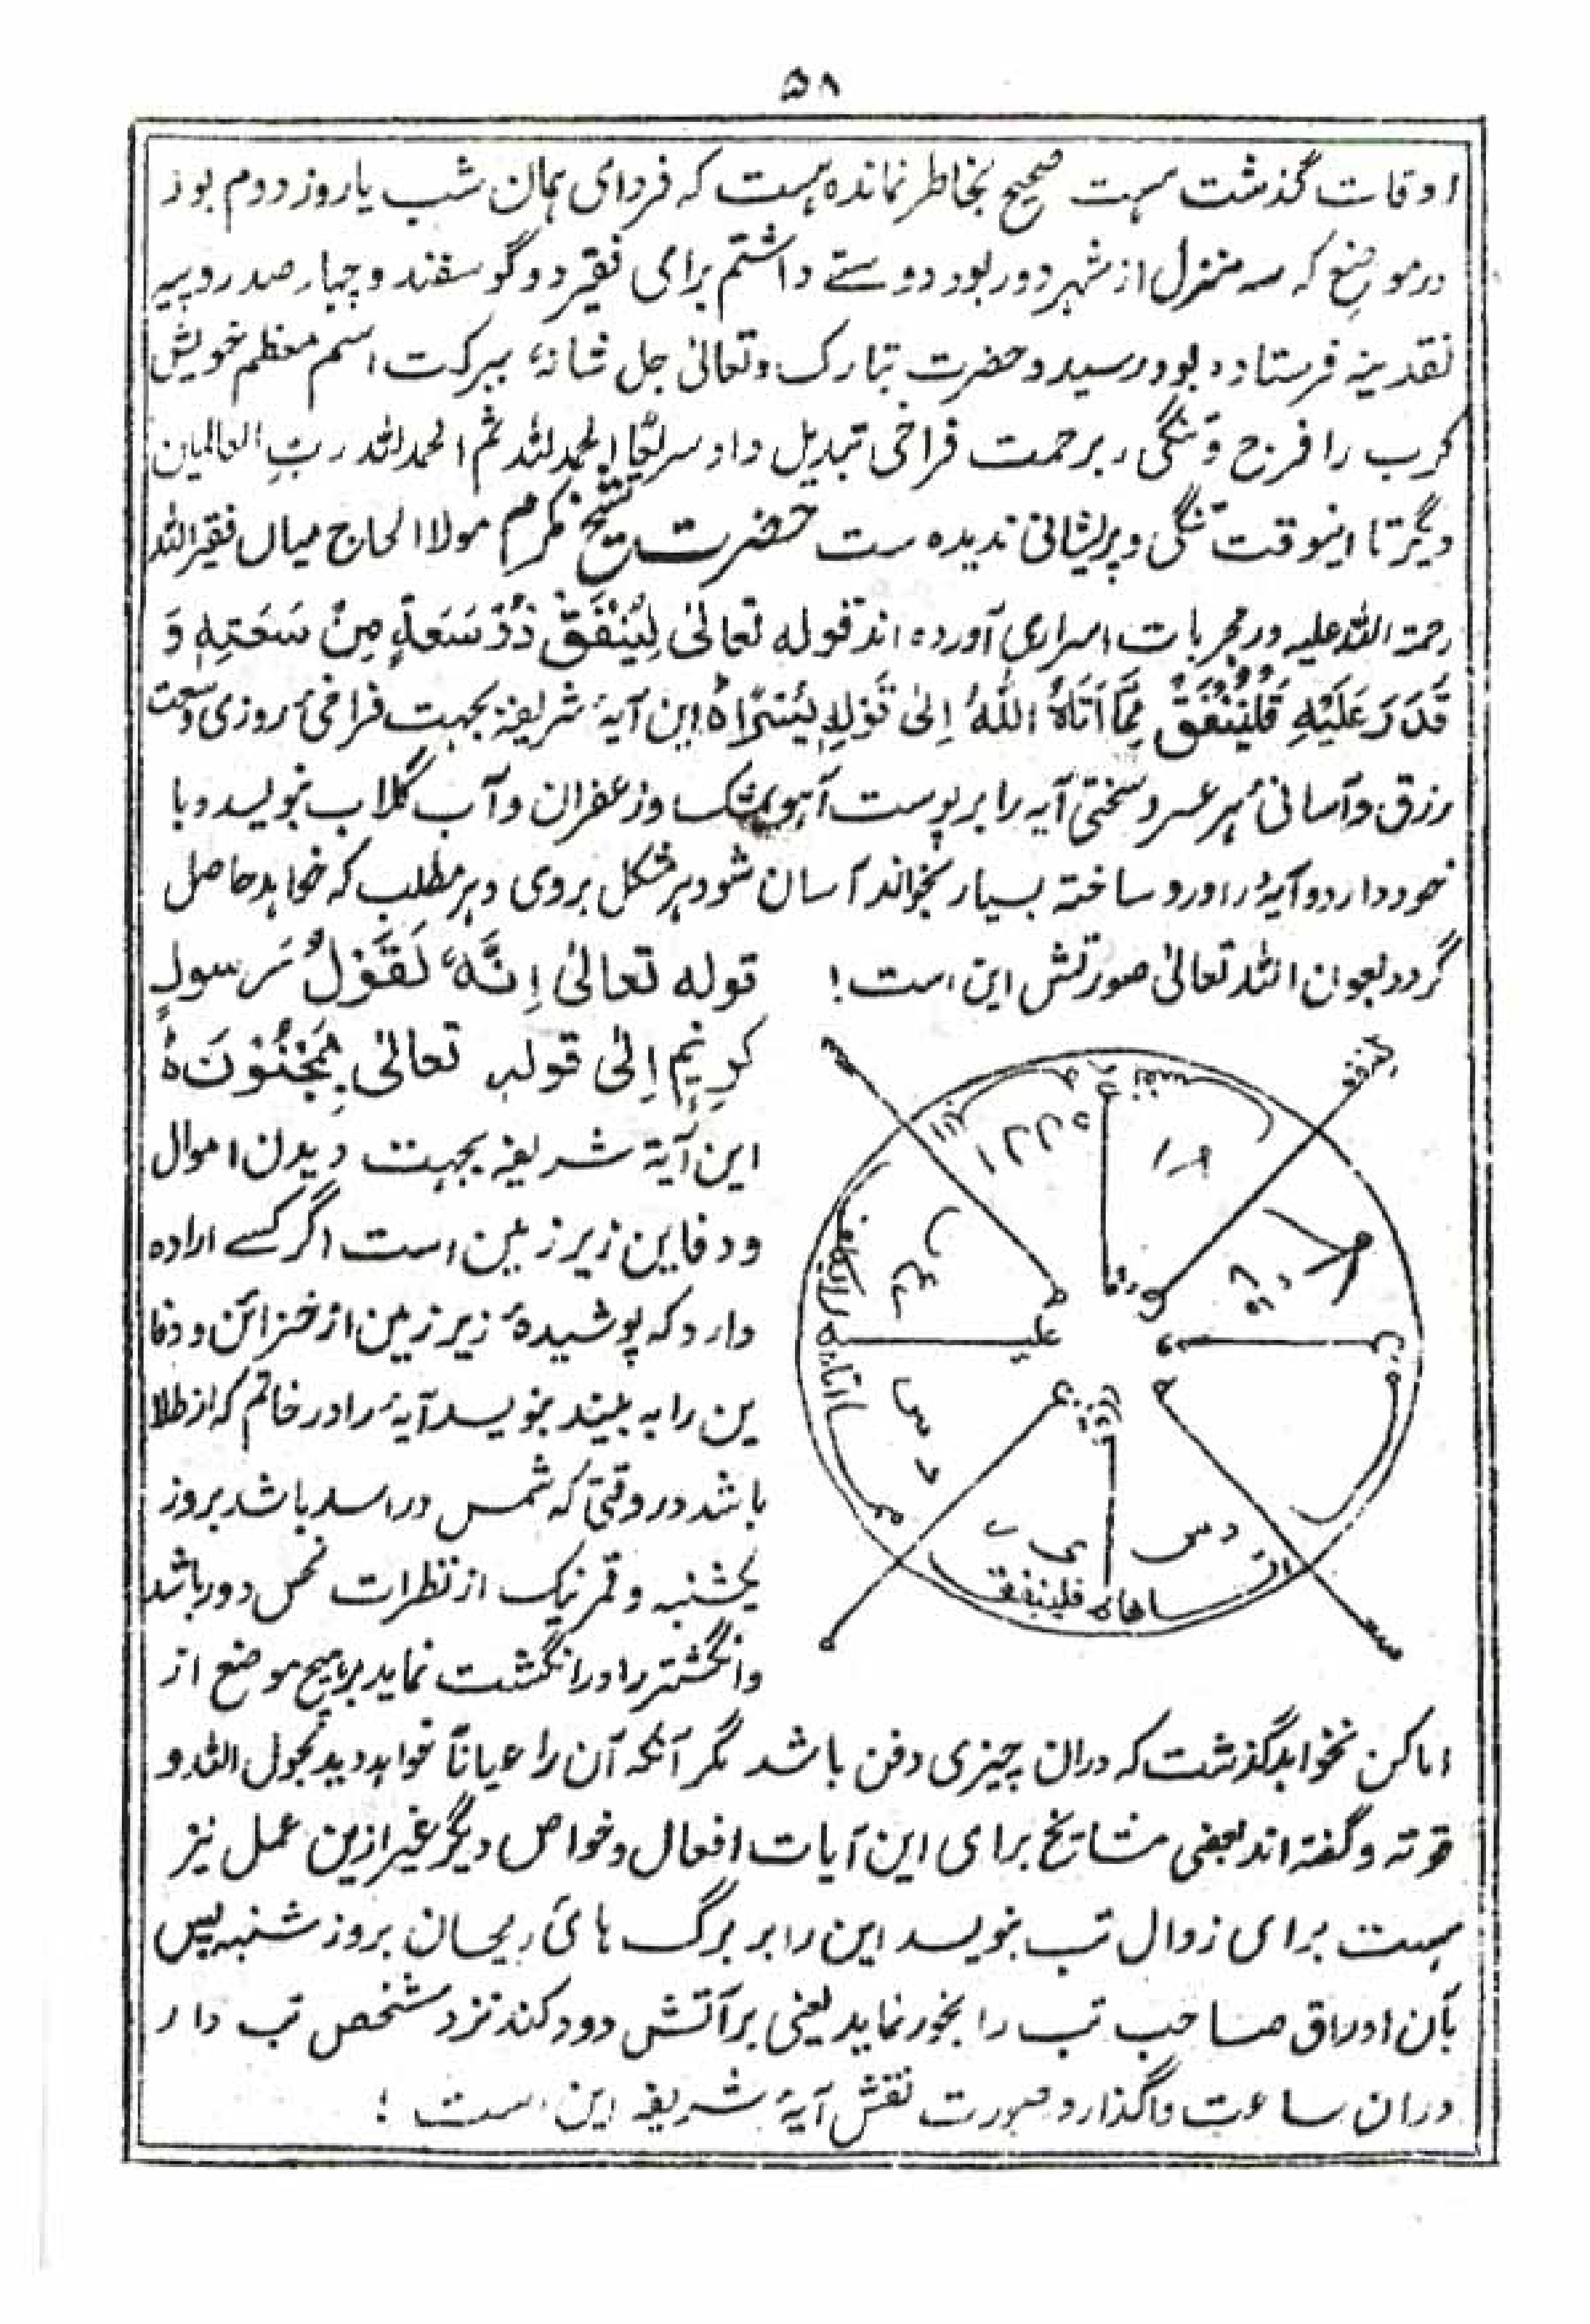 ۵۸
اوقات گذشت ہست صحیح بخاطر نماندہ ہست کہ فردای ہمان شب یا روز دوم بود
در موضع کہ سہ منزل از شہر دور بود دوستے داشتم برای فقیر دو گوسفند و چہار صد روپیہ
نقدینہ فرستادہ بود رسید و حضرت تبارک وتعالیٰ جل شانہ، ببرکت اسم معظم خویش
کرب را فرح و تنگی ربرحمت فراخی تبدیل داد سریعًا الحمدلله ثم الحمدلله ربِ العالمین
دیگر تا اینوقت تنگی و پریشانی ندیدہ ست حضرت شیخ مکرم مولانا الحاج میاں فقیرالله
رحمۃ اللہ علیہ در مجربات اسراری آوردہ اند قولہ تعالیٰ لِیُنْفِقْ ذُوْ سَعَةٍ مِنْ سَعَتِهٖ وَ
قَدَرَ عَلَیْهِ فَلْیُنْفِقْ مِمَّا اَتَاهُ اللهُ اِلیٰ قَوْلِهٖ یُسْرًا هُ این آیۂ شریفہ بجہت فراخیٔ روزی وسعت
رزق و آسانیٔ ہر عسر و سختی آیہ را بر پوست آہو بمشک وزعفران و آب گلاب بنویسد و با
خود دارد و آیۂ را ورد ساختہ بسیار بخواند آسان شود ہر مشکل بروی و ہر مطلب کہ خواہد حاصل
گردد بعون الله تعالیٰ صورتش این است!
قولہ تعالیٰ اِنَّهٗ، لَقَوْلُ رَسولٍ
کَرِیْمٍ اِلیٰ قولہٖ تعالیٰ بِمَجْنُوْنَ هُ
این آیۃ شریفہ بجہت دیدن اموال
ودفاین زیر زمین است اگر کسے ارادہ
دارد کہ پوشیدۂ زیر زمین از خزائن و دفا
ین را بہ بیند بنویسد آیۂ را در خاتم کہ از طلا
باشد در وقتی کہ شمس در اسد باشد بروز
یکشنبہ و قمر نیک از نظرات نحس دور باشد
وانگشتر را در انگشت نماید بہ ہیچ موضع از
علیہ
فلینفق
اماکن نخواہد گذشت کہ دران چیزی دفن باشد مگر آنکہ آن را عیاناً خواہد دید بحول الله و
قوتہ و گفتہ اند بعضی مشایخ برای این آیات افعال و خواص دیگر غیر ازین عمل نیز
ہست برای زوال تب بنویسد این را بر برگ ہائ ریحان بروز شنبہ پس
بآن اوراق صاحب تب را بخور نماید یعنی بر آتش دود کند نزد شخص تب دار
دران ساعت واگذارد صورت نقش آیۂ شریفہ این است !